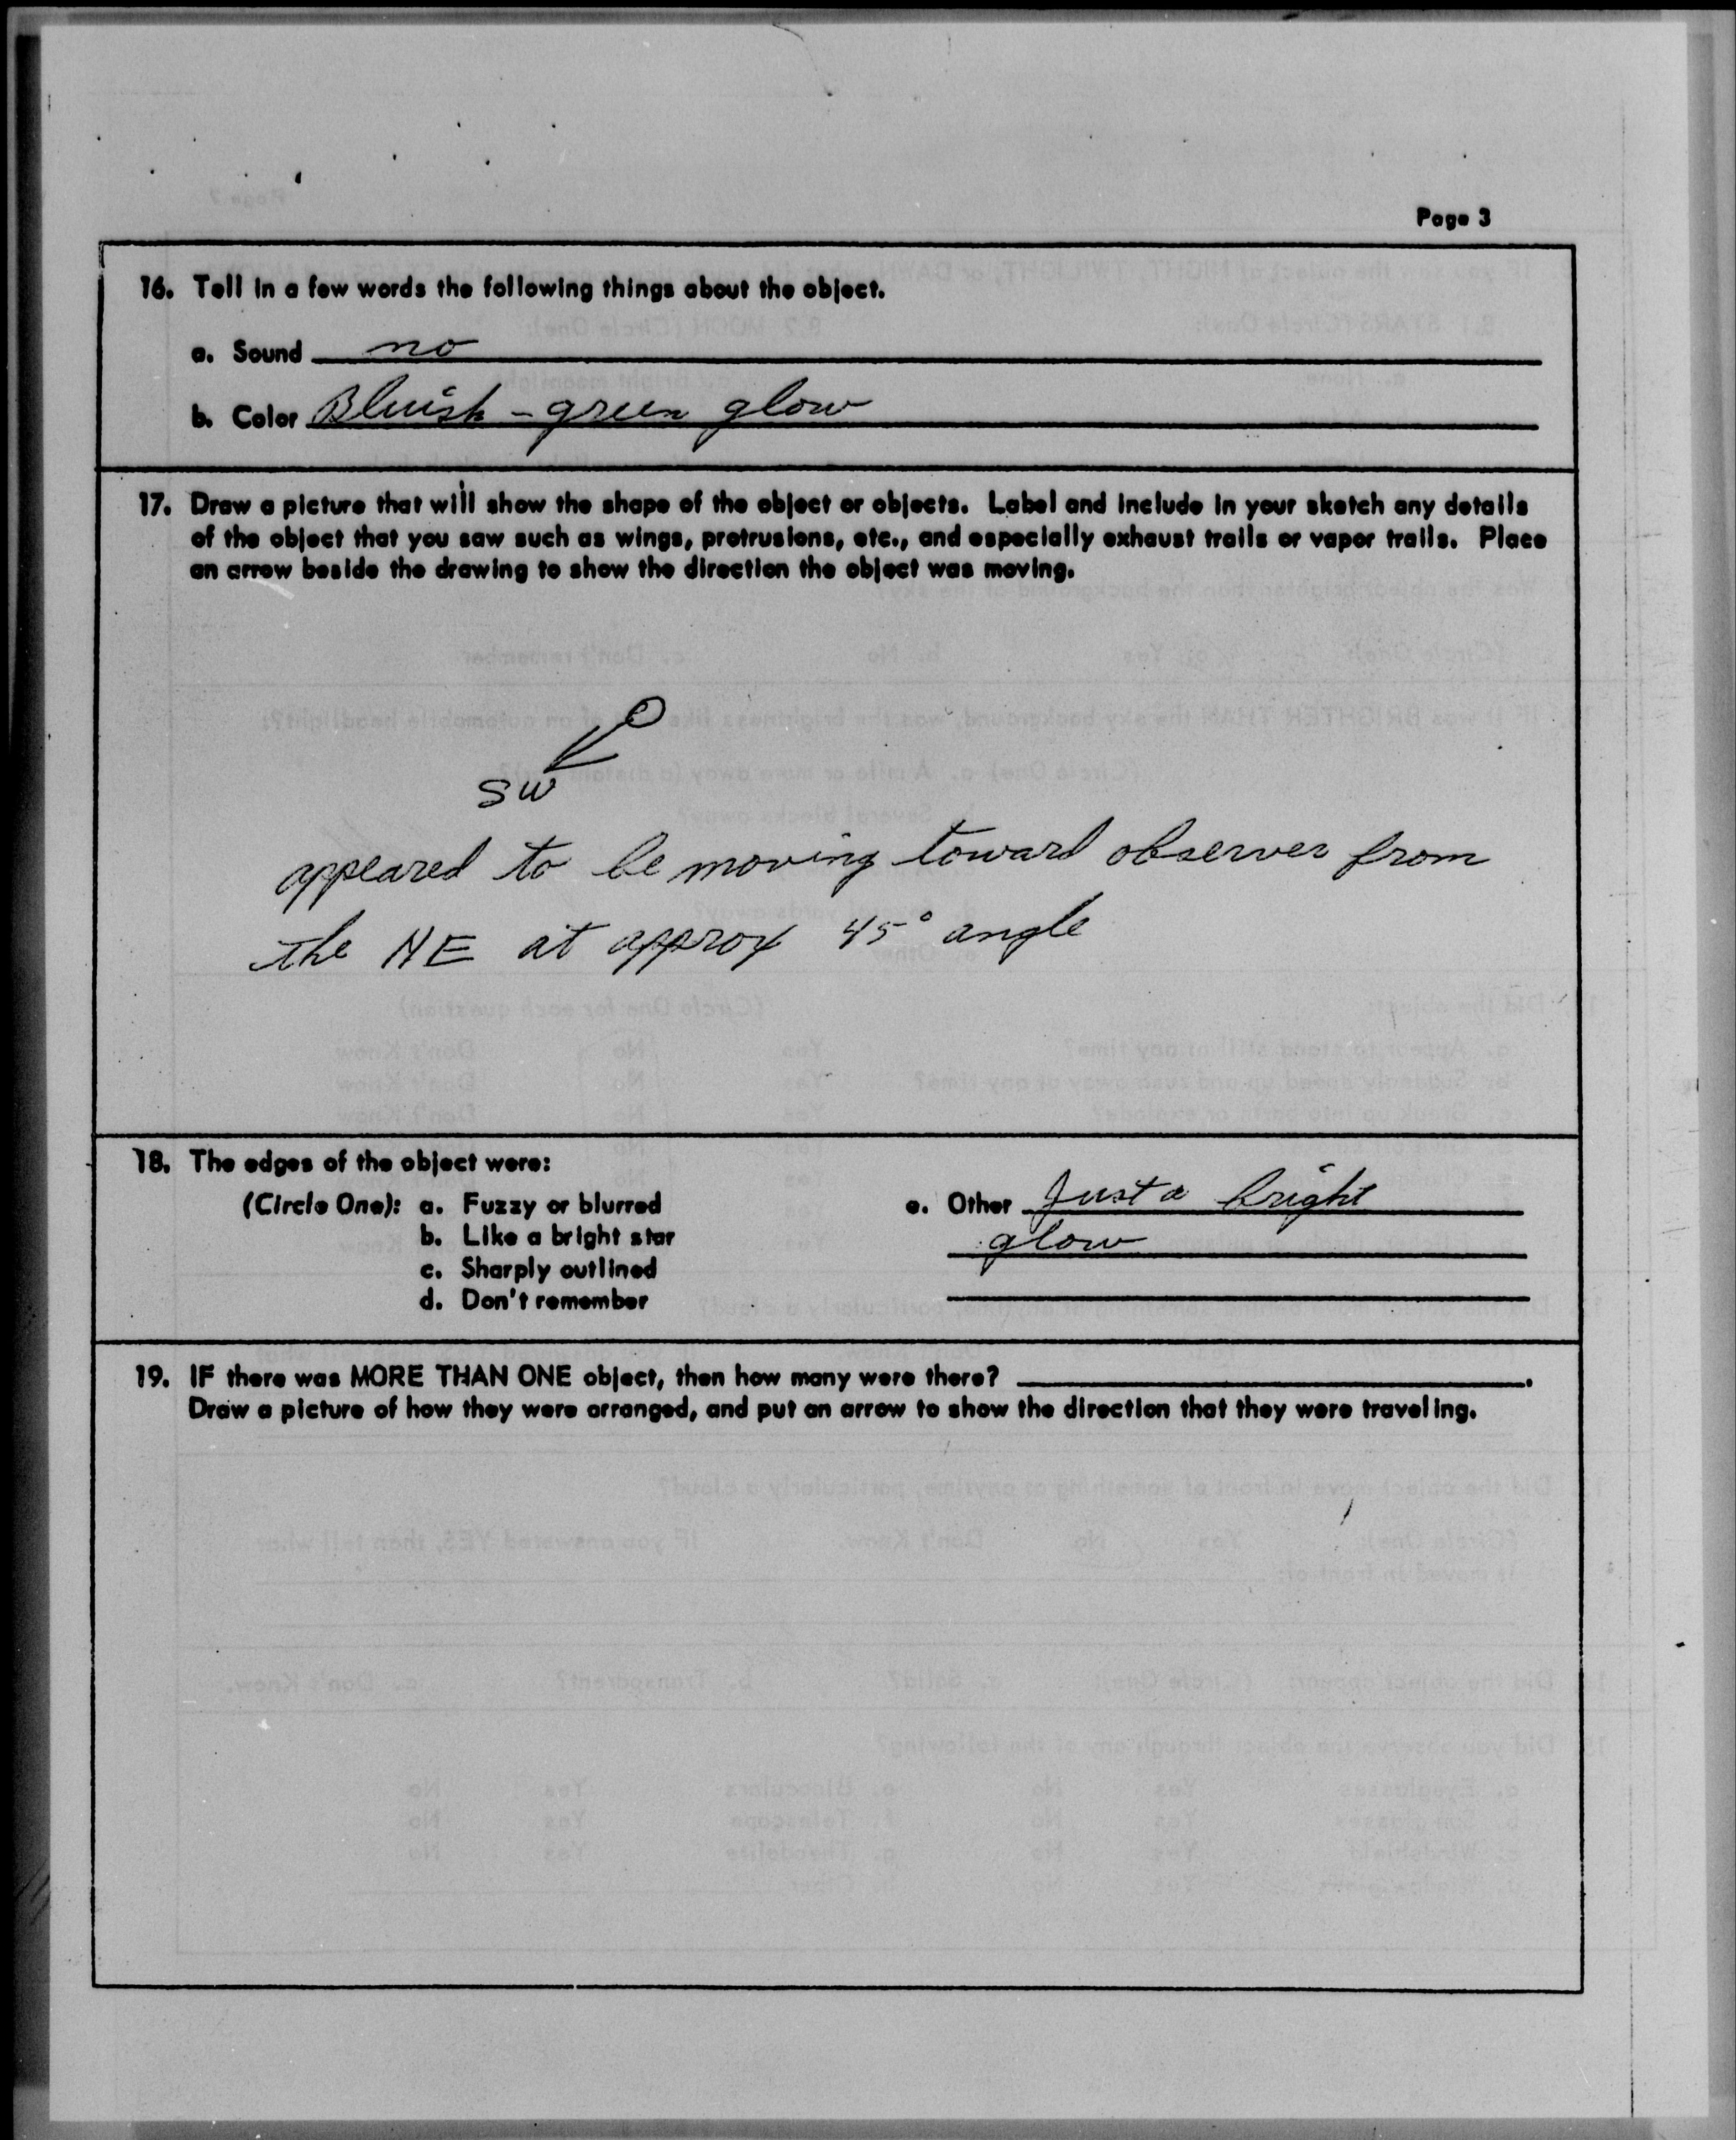 Page 3
16. Tell in a few words the following things about the object.
a. Sound no
b. Color Bluish - green glow
17. Draw a picture that will show the shape of the object or objects. Label and include in your sketch any details
of the object that you saw such as wings, protrusions, etc., and especially exhaust trails or vapor trails. Place
an arrow beside the drawing to show the direction the object was moving.
SW
appeared to be moving toward observer from
the NE at approx 45° angle
18. The edges of the object were:
(Circle One): a. Fuzzy or blurred
b. Like a bright star
c. Sharply outlined
d. Don't remember
e. Other Just a bright
glow
19. IF there was MORE THAN ONE object, then how many were there?
Draw a picture of how they were arranged, and put an arrow to show the direction that they were traveling.